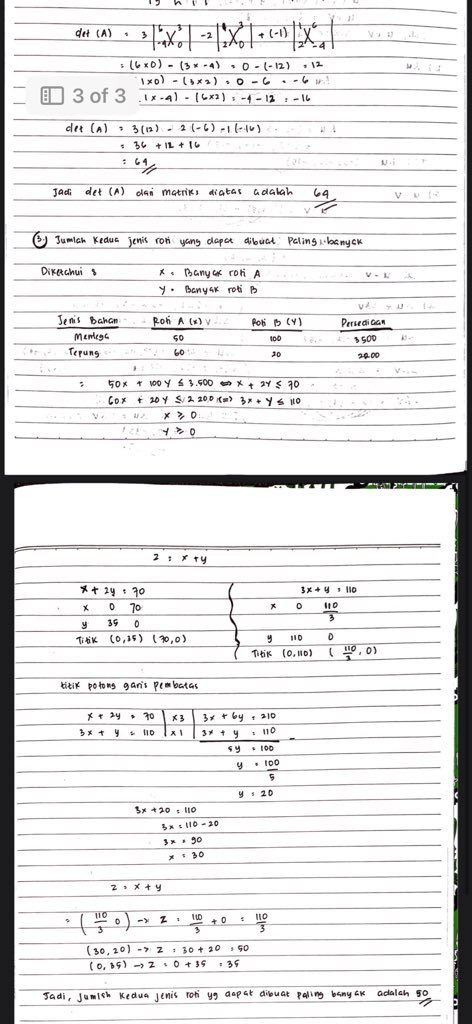 det (A) = 3 |6 3 -4 0| -2 |1 3 2 0| + (-1) |1 6 2 -4|
= (6x0) - (3x-4) = 0 - (-12) = 12
1x0) - (3x2) = 0 - 6 = -6
3 of 3
1x-4) - (6x2) = -4 - 12 = -16
det (A) = 3(12) - 2(-6) - 1(-16)
= 36 + 12 + 16
= 64
Jadi det (A) dari matriks diatas adalah 64
3. Jumlah kedua jenis roti yang dapat dibuat paling banyak
Diketahui : x = Banyak roti A
y = Banyak roti B
Jenis Bahan Roti A (x) Roti B (Y) Persediaan
Mentega 50 100 3.500
Tepung 60 20 2200
= 50x + 100y ≤ 3.500 ⇔ x + 2y ≤ 70
60x + 20y ≤ 2.200 ⇔ 3x + y ≤ 110
x ≥ 0
y ≥ 0
z = x + y
x + 2y = 70 3x + y = 110
x 0 70 x 0 110/3
y 35 0 y 110 0
Titik (0,35) (70,0) Titik (0,110) (110/3, 0)
titik potong garis pembatas
x + 2y = 70 | x3 | 3x + 6y = 210
3x + y = 110 | x1 | 3x + y = 110 -
5y = 100
y = 100/5
y = 20
3x + 20 = 110
3x = 110 - 20
3x = 90
x = 30
z = x + y
= (110/3 0) -> z = 110/3 + 0 = 110/3
(30,20) -> z = 30 + 20 = 50
(0,35) -> z = 0 + 35 = 35
Jadi, jumlah kedua jenis roti yg dapat dibuat paling banyak adalah 50